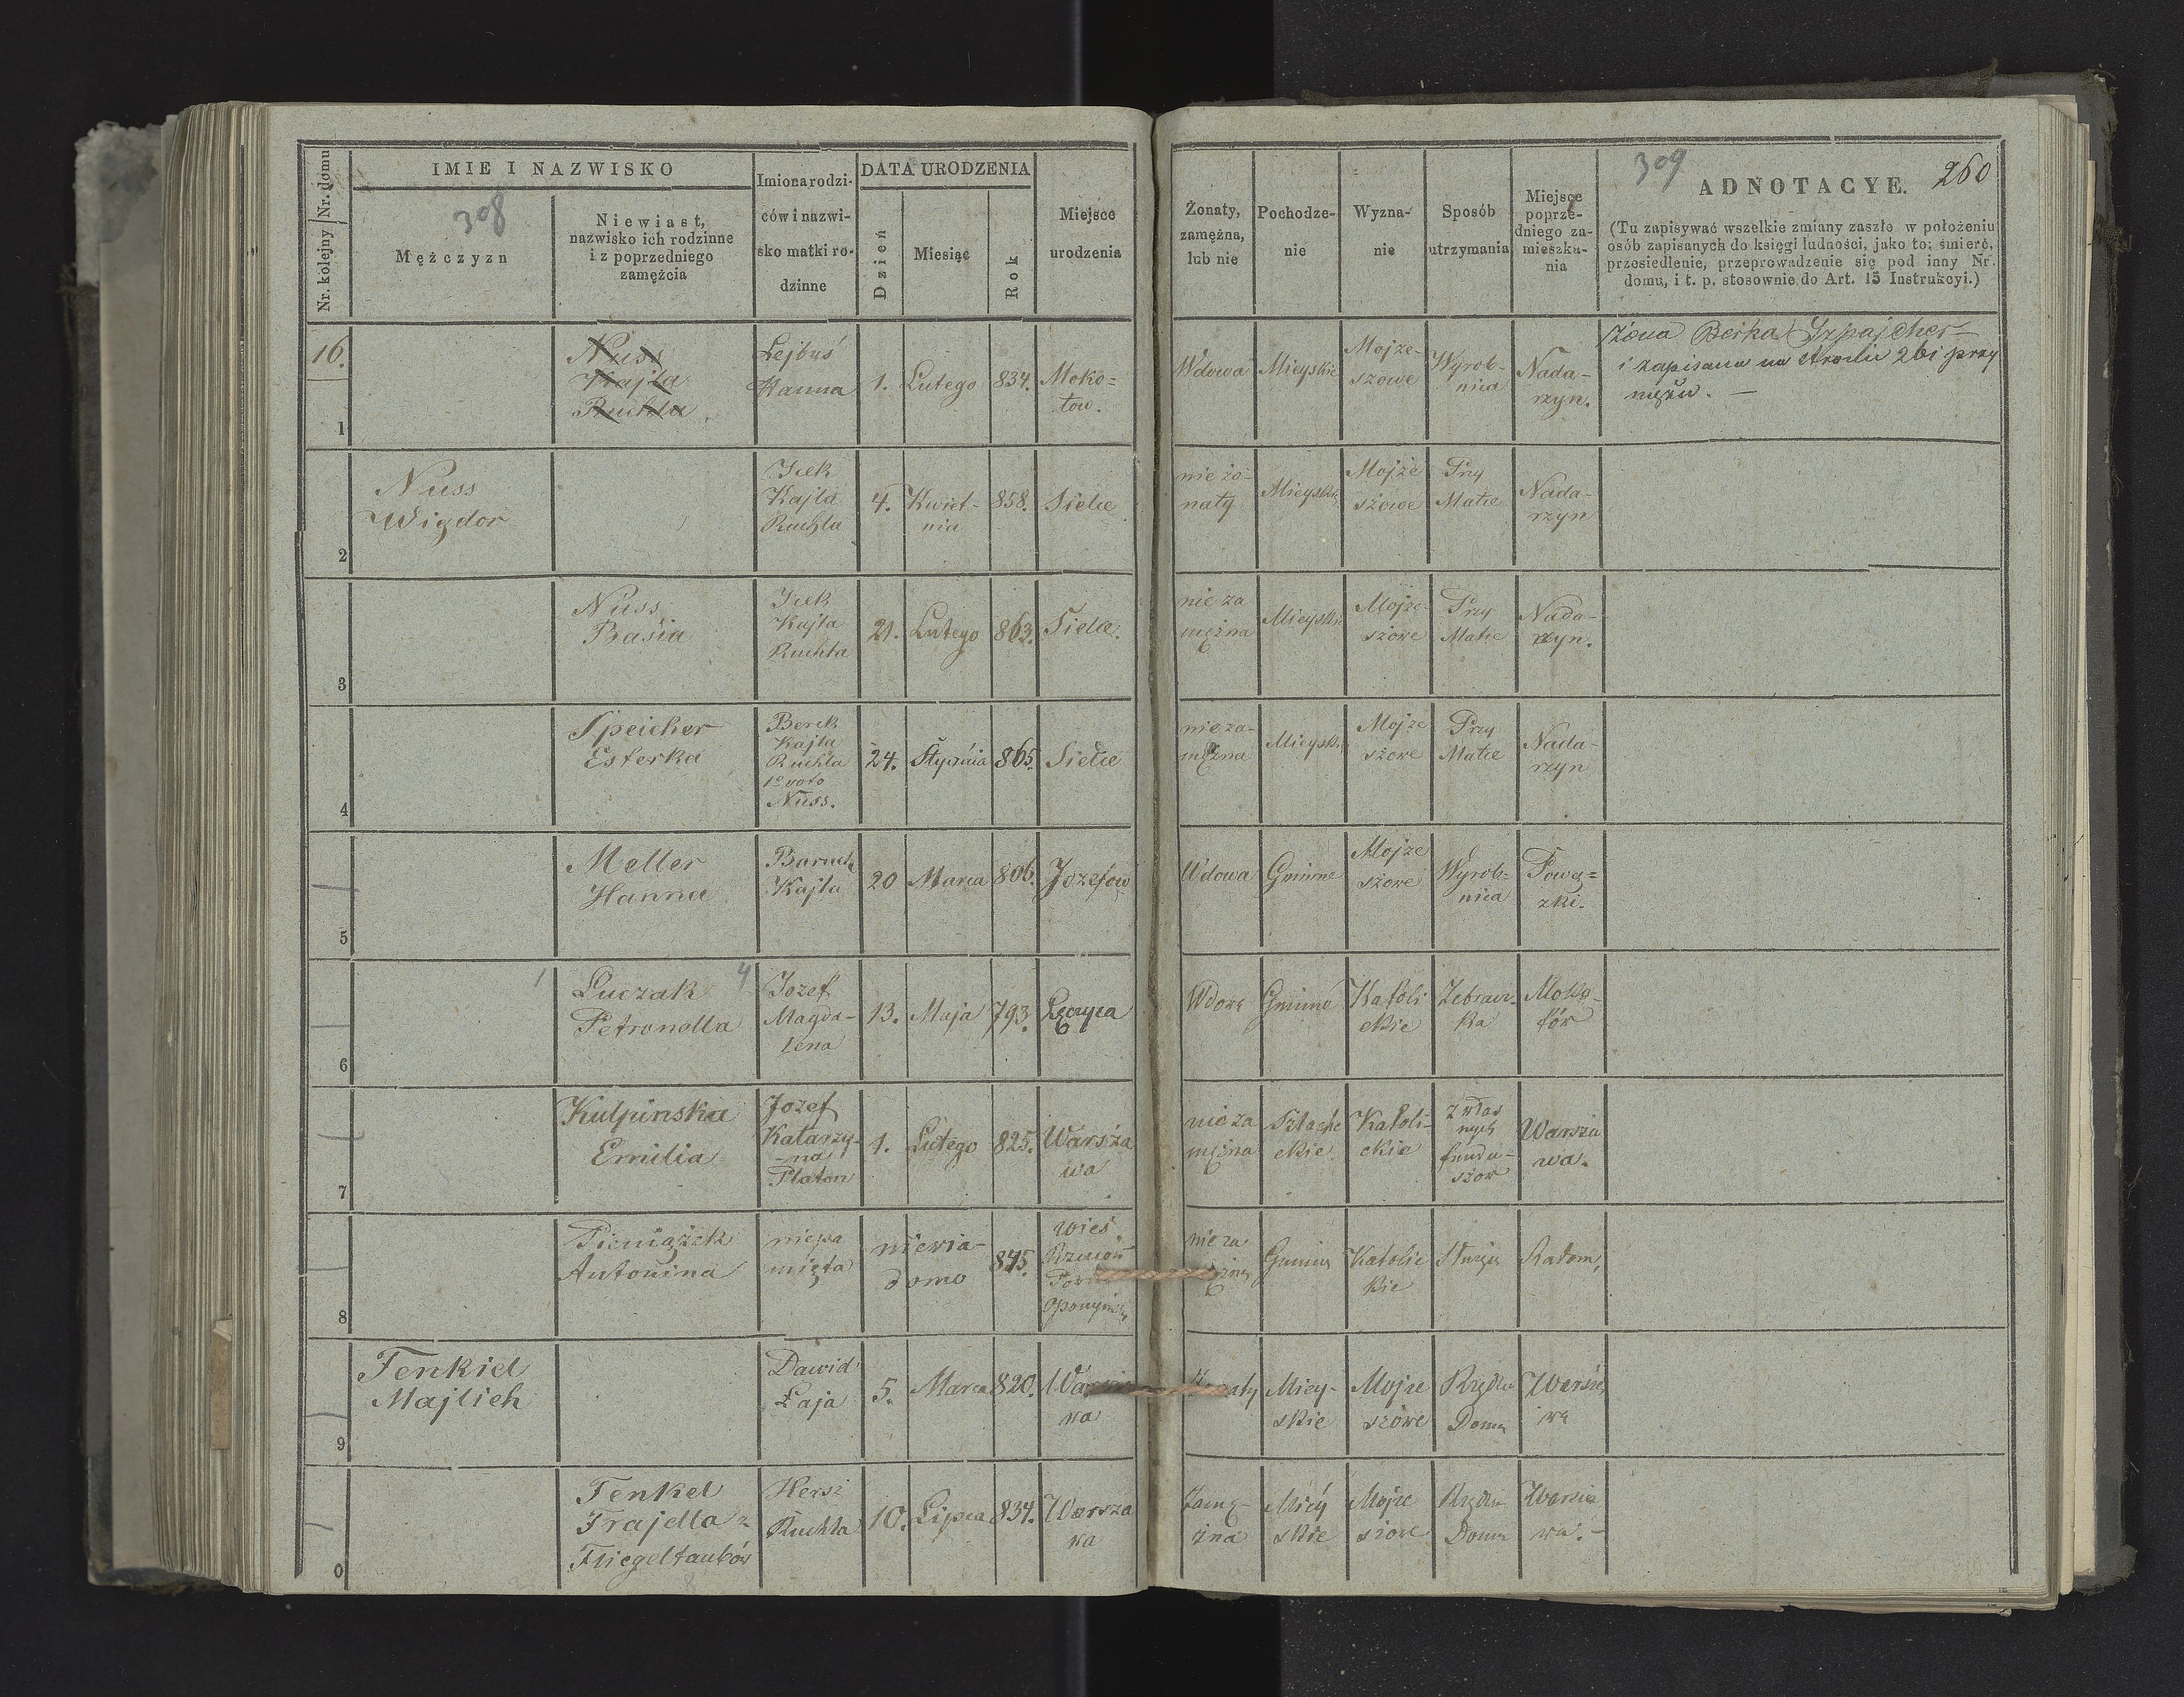 Nr. kolejny Nr. domu
IMIE I NAZWISKO
308
Mężczyzn
Niewiast,
nazwisko ich rodzinne
i z poprzedniego
zamężcia
Imiona rodzi-
ców i nazwi-
sko matki ro-
dzinne
DATA URODZENIA
Dzień
Miesiąc
Rok
Miejsce
urodzenia
Żonaty,
zamężna,
lub nie
Pochodze-
nie
Wyzna-
nie
Sposób
utrzymania
Miejsce
poprze-
dniego za-
mieszka-
nia
309
ADNOTACYE.
260
(Tu zapisywać wszelkie zmiany zaszłe w położeniu
osób zapisanych do księgi ludności, jako to: śmierć,
przesiedlenie, przeprowadzenie się pod inny Nr.
domu, i t. p. stosownie do Art. 15 Instrukcyi.)
16.
1
Nuss
Kajla
Ruchla
Lejbuś
Hanna
1.
Lutego
834.
Moko=
tow.
Wdowa
Mieyskie
Mojże-
szowe
Wyrob-
nica
Nada-
rzyn.
Żona Berka Szpajcher
i zapisana na stronie 261 przy
mężu. —
2
Nuss
Wigdor
Icek
Kajla
Ruchla
4.
Kwiet-
nia
858.
Sielce
nie żo-
naty
Mieyskie
Mojże
szowe
Przy
Matce
Nada-
rzyn
3
Nuss
Basia
Icek
Kajla
Ruchla
21.
Lutego
863.
Sielce.
nie za
mężna
Mieyskie
Mojże-
szowe
Przy
Matce
Nada-
rzyn.
4
Speicher
Esterka
Berek
Kajla
Ruchla
1º voto
Nuss.
24.
Stycznia
865.
Sielce
nie za-
mężna
Mieyskie
Mojże
szowe
Przy
Matce
Nada-
rzyn
5
Meller
Hanna
Baruch
Kajla
20
Marca
806.
Jozefow
Wdowa
Gminne
Mojze
szowe
Wyrob=
nica
Pową=
zki.
6
1
Luczak
4
Petronella
Jozef
Magda-
lena
13.
Maja
793.
Łęczyca
Wdowa
Gminne
Katoli
ckie
Żebracz-
ka
Moko-
tów
7
Kulpinska
Emilia
Jozef
Katarzy-
na
Platon
1.
Lutego
825.
Warsza
wa
nie za
mężna
Szlache
ckie
Katoli-
ckie
z włas
nych
fundu-
szow
Warsza
wa.
8
Pieniążek
Antonina
niepa
mięta
niewia-
domo
845.
wieś
nie za
Gminne
Katolic
kie
Służąca
Radom,
9
Fenkiel
Majlich
Dawid
Łaja
5.
Marca
820.
Warsza
wa
Żonaty
Miey-
skie
Mojze
szowe
Rządca
Domu
Warsza
wa
0
Fenkel
Frajdla z
Fliegeltaubów
Hersz
Ruchla
10.
Lipca
834.
Warsza
wa
Zamę-
żna
Miey
skie
Mojze
szowe
Rządca
Domu
Warsza
wa. —